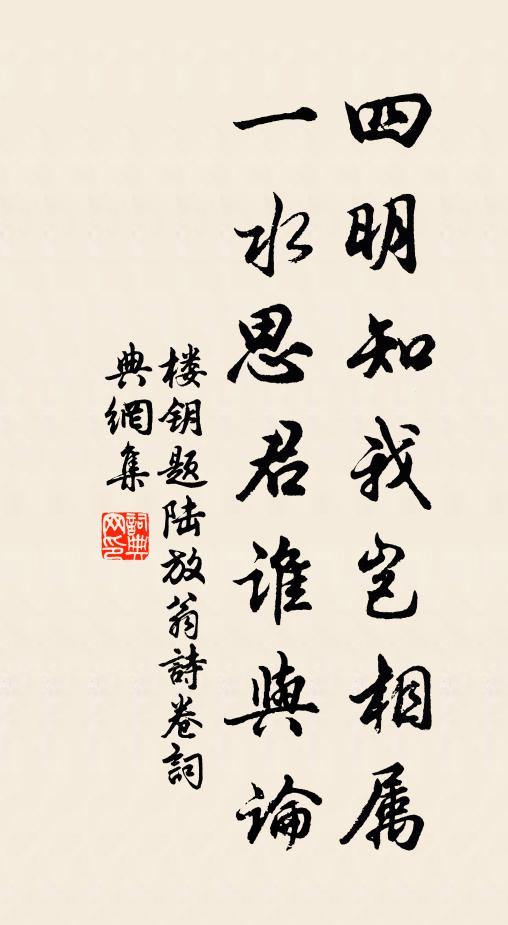 四明知我岂相属
一水思君谁與論
楼钥题陆放翁詩卷詞
典網集
詞典
网印